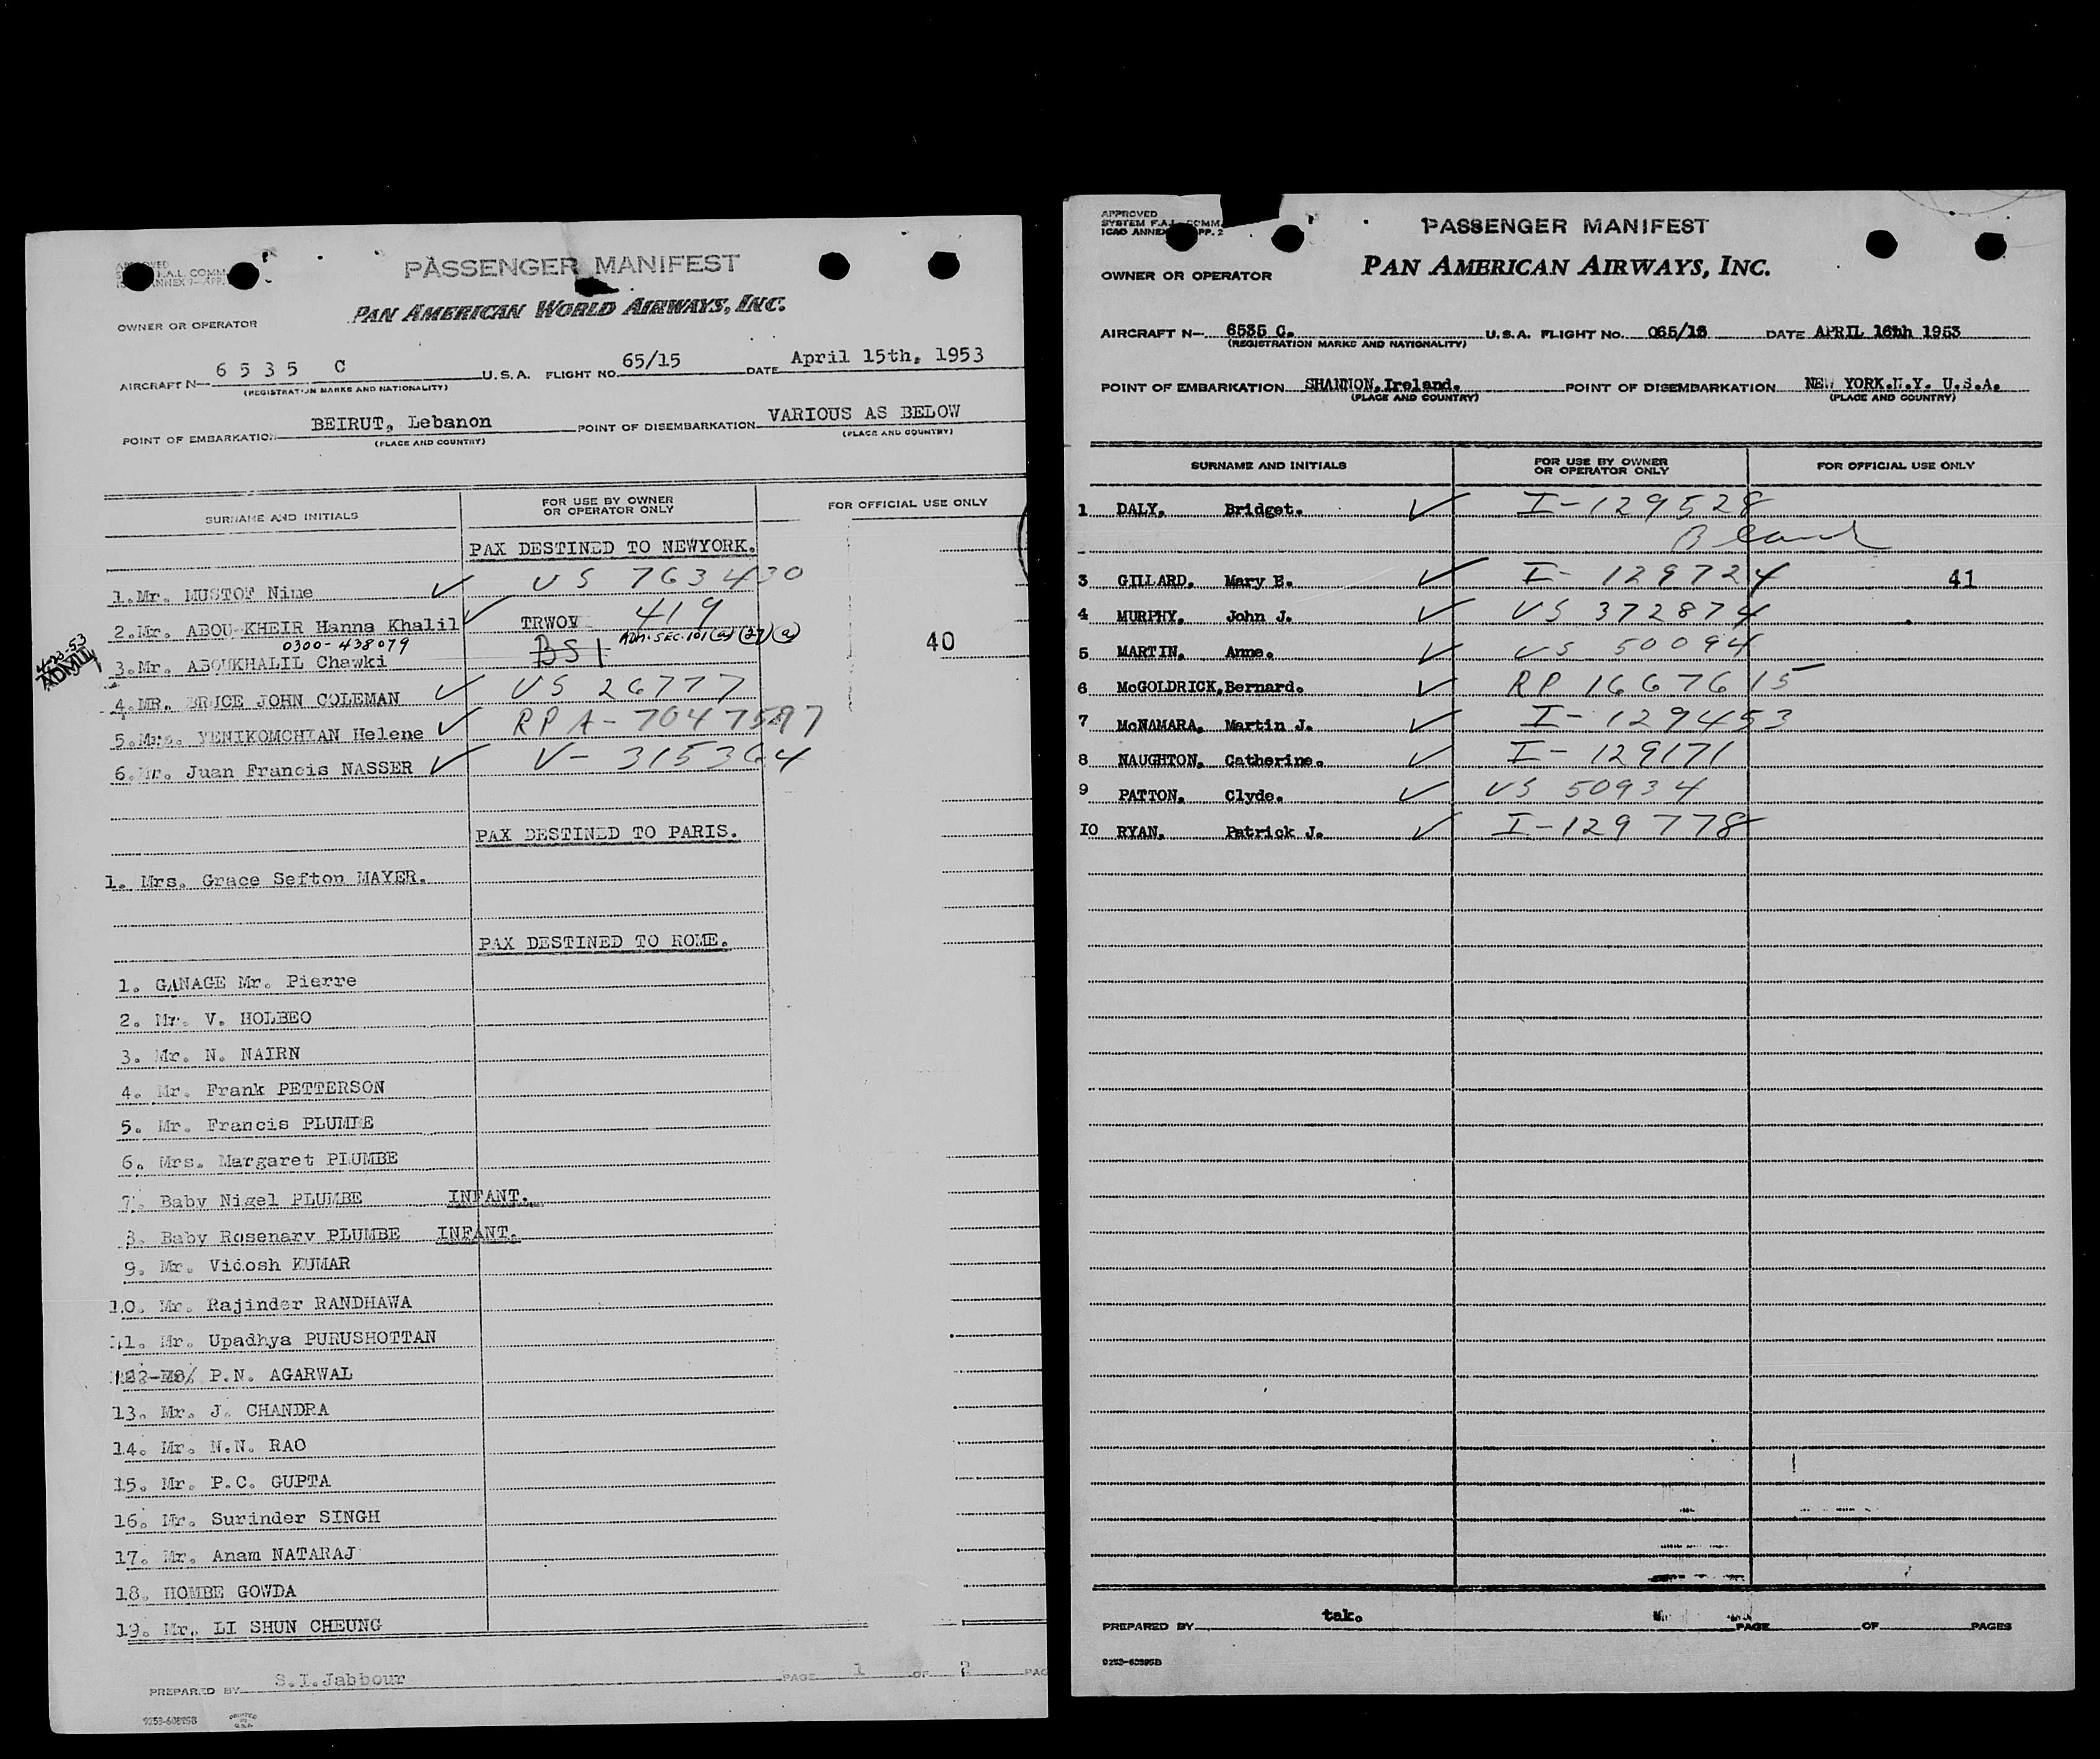 PASSENGER MANIFEST
PAN AMERICAN WORLD AIRWAYS, INC.
OWNER OR OPERATOR
AIRCRAFT N- 6 5 3 5 C U.S.A. FLIGHT NO. 65/15 DATE April 15th, 1953
(REGISTRATION MARKS AND NATIONALITY)
POINT OF EMBARKATION BEIRUT, Lebanon POINT OF DISEMBARKATION VARIOUS AS BELOW
(PLACE AND COUNTRY) (PLACE AND COUNTRY)
SURNAME AND INITIALS FOR USE BY OWNER OR OPERATOR ONLY FOR OFFICIAL USE ONLY
PAX DESTINED TO NEWYORK.
1.Mr. MUSTOF Nime ✓ US 763430
2.Mr. ABOU-KHEIR Hanna Khalil ✓ TRWOV 419
0300-438079 ADM. SEC. 101(a)(27)(a)
4-23-53 ADMIL
3.Mr. ABOUKHALIL Chawki BS1 40
4.MR. BRUCE JOHN COLEMAN ✓ US 26777
5.Mrs. YENIKOMCHIAN Helene ✓ RP A-7047597
6.Mr. Juan Francis NASSER ✓ V-315364
PAX DESTINED TO PARIS.
1. Mrs. Grace Sefton MAYER.
PAX DESTINED TO ROME.
1. GANAGE Mr. Pierre
2. Mr. V. HOLBEO
3. Mr. N. NAIRN
4. Mr. Frank PETTERSON
5. Mr. Francis PLUMBE
6. Mrs. Margaret PLUMBE
7. Baby Nigel PLUMBE INFANT.
8. Baby Rosenary PLUMBE INFANT.
9. Mr. Vidosh KUMAR
10. Mr. Rajinder RANDHAWA
11. Mr. Upadhya PURUSHOTTAN
12 P.N. AGARWAL
13. Mr. J. CHANDRA
14. Mr. N.N. RAO
15. Mr. P.C. GUPTA
16. Mr. Surinder SINGH
17. Mr. Anam NATARAJ
18. HOMBE GOWDA
19. Mr. LI SHUN CHEUNG
PREPARED BY S.I.Jabbour PAGE 1 OF 2
PRINTED IN U.S.A.
APPROVED
SYSTEM F.A.L. COMM.
ICAO ANNEX APP. 2
PASSENGER MANIFEST
PAN AMERICAN AIRWAYS, INC.
OWNER OR OPERATOR
AIRCRAFT N- 6535 C. U.S.A. FLIGHT NO. 065/15 DATE APRIL 16th 1953
(REGISTRATION MARKS AND NATIONALITY)
POINT OF EMBARKATION SHANNON,Ireland. POINT OF DISEMBARKATION NEW YORK.N.Y. U.S.A.
(PLACE AND COUNTRY) (PLACE AND COUNTRY)
SURNAME AND INITIALS FOR USE BY OWNER OR OPERATOR ONLY FOR OFFICIAL USE ONLY
1 DALY, Bridget. ✓ I-129528
3 GILLARD, Mary E. ✓ I-129724 41
4 MURPHY, John J. ✓ US 372874
5 MARTIN, Anne. ✓ US 50094
6 McGOLDRICK, Bernard. ✓ RP 1667615
7 McNAMARA, Martin J. ✓ I-129453
8 NAUGHTON, Catherine. ✓ I-129171
9 PATTON, Clyde. ✓ US 50934
10 RYAN, Patrick J. ✓ I-129778
PREPARED BY tak. PAGE OF PAGES